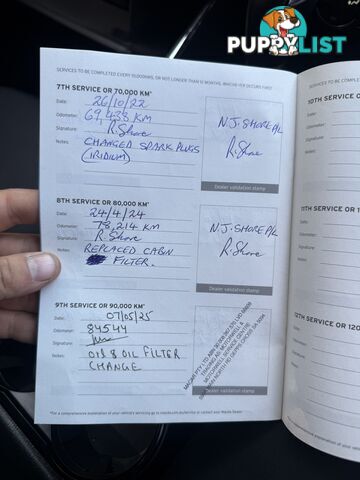 PUPPYLIST
SERVICES TO BE COMPLETED EVERY 10,000KMS, OR NOT LONGER THAN 12 MONTHS, WHICHEVER OCCURS FIRST
7TH SERVICE OR 70,000 KM*
Date: 26/10/22
Odometer: 69,433 KM
Signature: R.Shore
Notes: CHANGED SPARK PLUGS
(IRIDIUM)
N.J. SHORE P/L
R.Shore
Dealer validation stamp
8TH SERVICE OR 80,000 KM*
Date: 24/4/24
Odometer: 78,214 KM
Signature: R.Shore
Notes: REPLACED CABIN
FILTER.
N.J. SHORE P/L
R.Shore
Dealer validation stamp
9TH SERVICE OR 90,000 KM*
Date: 07/05/25
Odometer: 84544
Signature:
Notes: OIL & OIL FILTER
CHANGE
Dealer validation stamp
*For a comprehensive explanation of your vehicle's servicing go to mazda.com.au/service or contact your Mazda Dealer.
10TH SERVICE OR
Date:
Odometer:
Signature:
Notes:
11TH SERVICE OR 1
Date:
Odometer:
Signature:
Notes:
12TH SERVICE OR 120
Date:
Odometer:
Signature:
Notes:
*For a comprehensive explanation of your vehicle's